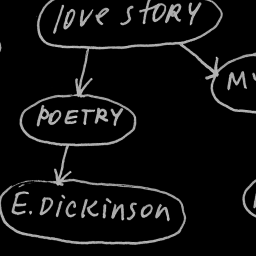 love stoRY
MY
POETRY
E. Dickinson